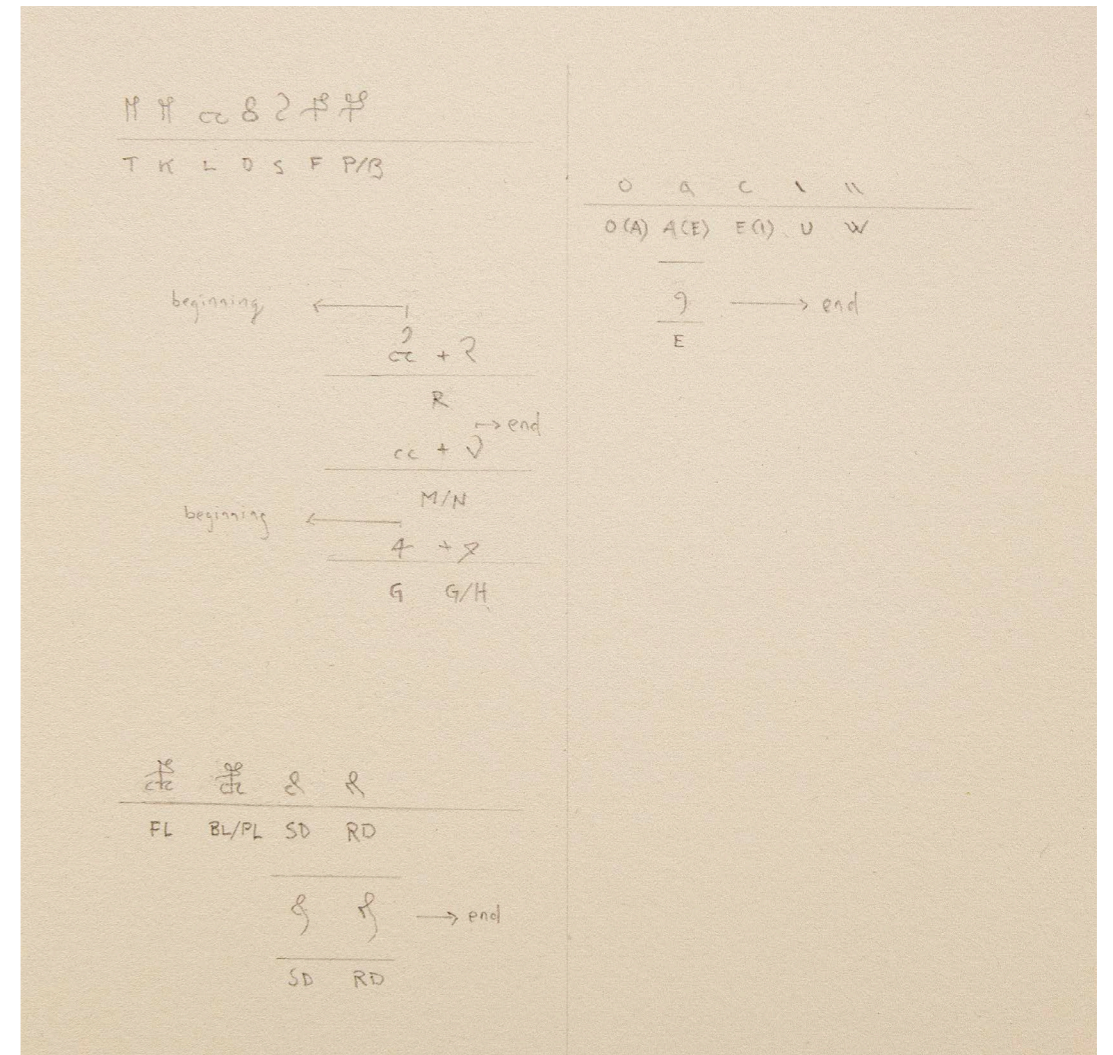 T K L D S F P/B
beginning ←
+
R
→ end
cc +
M/N
beginning ←
4 +
G G/H
FL BL/PL SD RD
→ end
SD RD
o a c \ \\
O(A) A(E) E(I) U W
9 → end
E